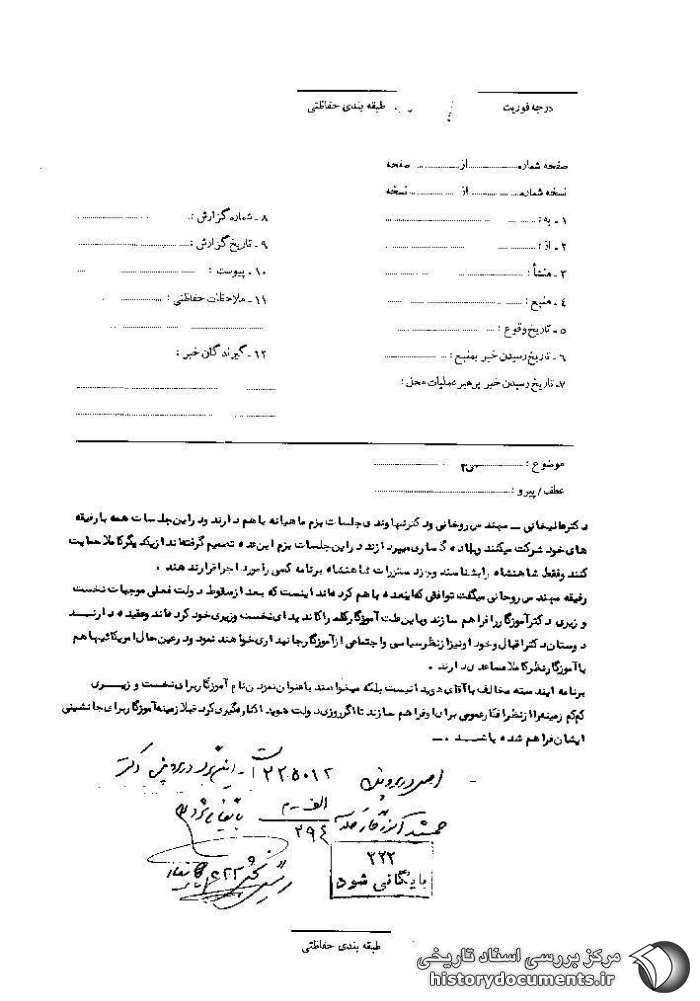 درجه فوریت
طبقه بندی حفاظتی
صفحه شماره از صفحه
نسخه شماره از نسخه
۱ - به :
۲ - از :
۳ - منشأ :
۴ - منبع :
۵ - تاریخ وقوع :
۶ - تاریخ رسیدن خبر بمنبع :
۷ - تاریخ رسیدن خبر برهبر عملیات محل :
۸ - شماره گزارش :
۹ - تاریخ گزارش :
۱۰ - پیوست :
۱۱ - ملاحظات حفاظتی :
۱۲ - گیرندگان خبر :
موضوع :
عطف / پیرو :
دکترعالیخانی ـ مهندس روحانی ودکترنهاوندی جلسات بزم ماهیانه باهم دارند ودراین جلسات همه بارفیقه
های خود شرکت میکنند وبباده گساری میپردازند دراین جلسات بزم این عده تصمیم گرفته‌اند ازیکدیگرکاملا حمایت
کنند وفقط شاهنشاه رابشناسند وجزد ستورات شاهنشاه برنامه کسی رامورد اجراقرارند هند .
رفیقه مهند س روحانی میگفت توافقی که اینعده باهم کرده‌اند اینست که بعد ازسقوط دولت فعلی موجبات نخست
وزیری دکترآموزگاررا فراهم سازند وباین علت آموزگار راکاندیدای نخست وزیری خود کرده‌اند وعقیده دارنـد
دوستان دکتراقبال وخود اونیزازنظرسیاسی واجتماعی ازآموزگارجانبداری خواهند نمود ودرعین حال امریکائیهاهم
با آموزگارنظرکاملا مساعدی دارند .
برنامه ایندسته مخالف باآقای هویدانیست بلکه میخواهند باعنوان نمودن نام آموزگاربرای نخست وزیــری
کم‌کم زمینه راازنظرافکارعمومی برای اوفراهم سازند تااگرروزی دولت هویدا کناره‌گیری کرد قبلا زمینه آموزگاربرای جانشینی
ایشان فراهم شده باشـــد . ــ
اصل در پرونده
۲۲۵۰۱۲
دکتر
جمشید آموزگار
الف - م
۲۹۴
بایگانی شود
۳۲۲
طبقه بندی حفاظتی
مرکز بررسی اسناد تاریخی
historydocuments.ir